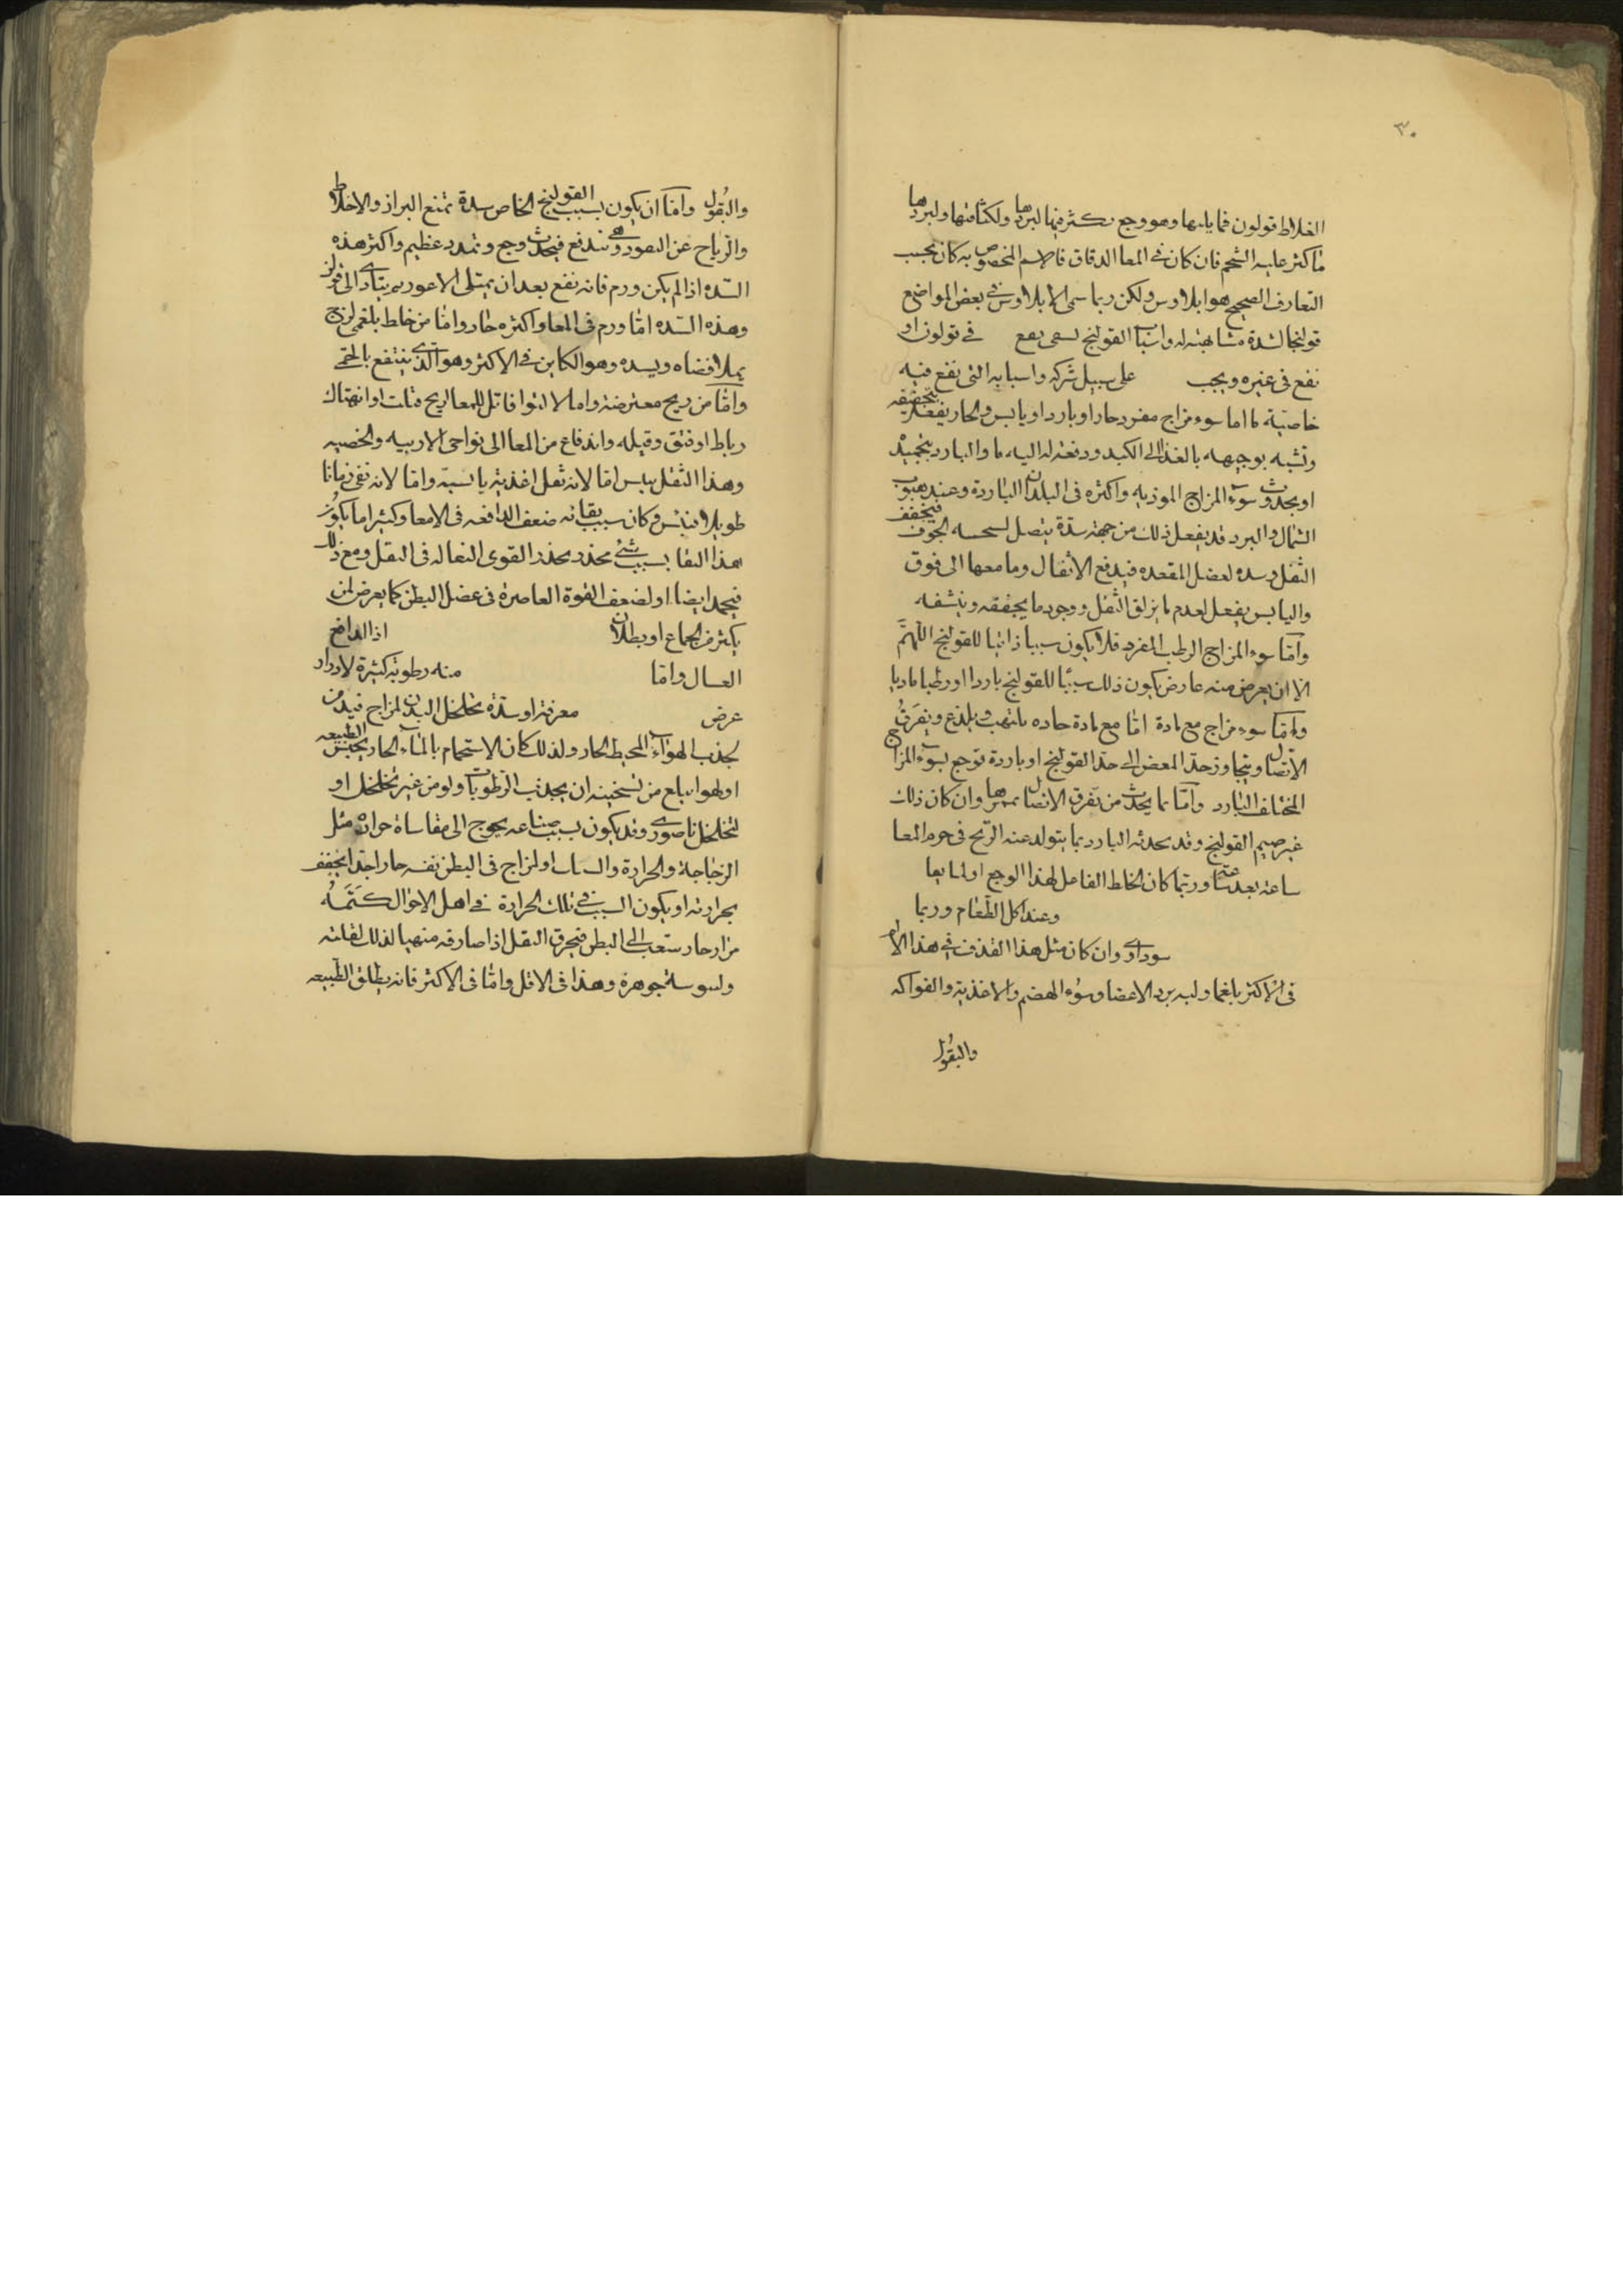 ٣٠
الغلاظ قولون فما يليها وهو وجع يكثر فيها لبردها ولكثافتها ولبردها
ما كثر عليه الشحم فان كان في المعا الدقاق فالاسم المخصوص به كان بحسب
التعارف الصحيح هو ايلاوس ولكن ربما سمى الايلاوس في بعض المواضع
قولنجا لشدة مشابهته له واسباب القولنج يقع في قولون او
تقع في غيره ويجب على سبيل شركه واسبابه التي تقع فيه
خاصية ما اما سوء مزاج مفرد حار او بارد او يابس والحار يفعله بتجفيفه
وتشبه بوجيهه بالغذا الى الكبد ودفعته له اليه ما والبارد بتجميد
او يحدث سوء المزاج الموذيه واكثره في البلدان الباردة وعند هبوب
الشمال والبرد قد يفعل ذلك من جهته سدة يتصل الجوف فيخفف
الثفل وسده لعضل المقعده فيدفع الاثفال وما معها الى فوق
واليابس يفعل لعدم ما يزلق الثفل ووجود ما يجففه وينشفه
وامّا سوء المزاج الرطب المفرد فلا يكون سببا ذاتيا للقولنج اللهمّ
الا ان يعرض منه عارض يكون ذلك سببًا للقولنج باردا او رطبا ماديا
وامّا سوء مزاج مع مادة امّا مع مادة حاده يلتهب ويلذع ويفرق
الاتصال ويتجاوز حدّ المغص الى حد القولنج او باردة توجع بسوء المزاج
المختلف البارد وامّا ما يحدث من تفرق الاتصال وان كان ذلك
غير صيم القولنج وقد يحدثه البارد بما يتولد عنه الريح في جرم المعا
ساعته بعد ساعته وربما كان الخلط الفاعل لهذا الوجع
وعند اكل الطعام وربما
سوداوى وان كان مثل هذا القذف في هذا الالم
في الاكثر بلغما وليه برد الاعضا وسُوء الهضم والاغذية والفواكه
والبقُول
والبقُول وامّا ان يكون بسبب القولنج الخاص سدة تمنع البراز والاخلاط
والرياح عن النفوذ وهى تندفع فيحدث وجع وتمدد عظيم واكثر هذه
السّده اذا لم يكن ورم فانه تقع بعد ان يمتلى الاعور ثم يتادى الى قولن
وهذه السّده امّا ورم في المعا واكثره حار وامّا من خلط بلغمى لزج
يملا فضاه ويسده وهو الكاين في الاكثر وهو الذى ينتفع بالحمى
وامّا من ريح معترضة واما لالتوا فاتل للمعا لريح فتلت او انهتاك
رباط او فتق وقيله واندفاع من المعا الى نواحى الاربيه والخصيه
وهذا الثفل يبس امّا لانه ثفل اغذية يابسة وامّا لانه بقى زمانا
طويلا فيبس وكان سبب بقائه ضعف الدافعه في الامعا وكثيرا ما يكون
هذا البقا بسبب شئ مخدر يخدر القوى الفعاله في الثفل ومع ذلك
فيجمد ايضا او لضعف القوة العاصرة في عضل البطن كما يعرض لمن
يكثر الجماع او بطلان اذا الدافع
العسال وامّا منه رطوبة كثيرة لادرار
عرض معرفة او سدة تخلخل البدن لمزاج فيه من
يجذب الهواء المحيط الحار ولذلك كان الاستحمام بالماء الحار يحبس الطبيعه
او لهوا ابلغ من تسخينه ان يجذب الرطوبات ولو من غير تخلخل او
لتخلخل ناصورى وقد يكون بسبب صناعه يحوج الى مقاساة حرارة مثل
الزجاجة والحرارة او لمزاج في البطن نفسه حار اجدا يجفف
بحرارته او يكون السبب في تلك الحرارة
مرار حار ينصب الى البطن فيحرق الثفل اذا صادفه متهيا لذلك لقلته
وليبوسة جوهرة وهذا في الاقل وامّا في الاكثر فانه يطلق الطبيعه